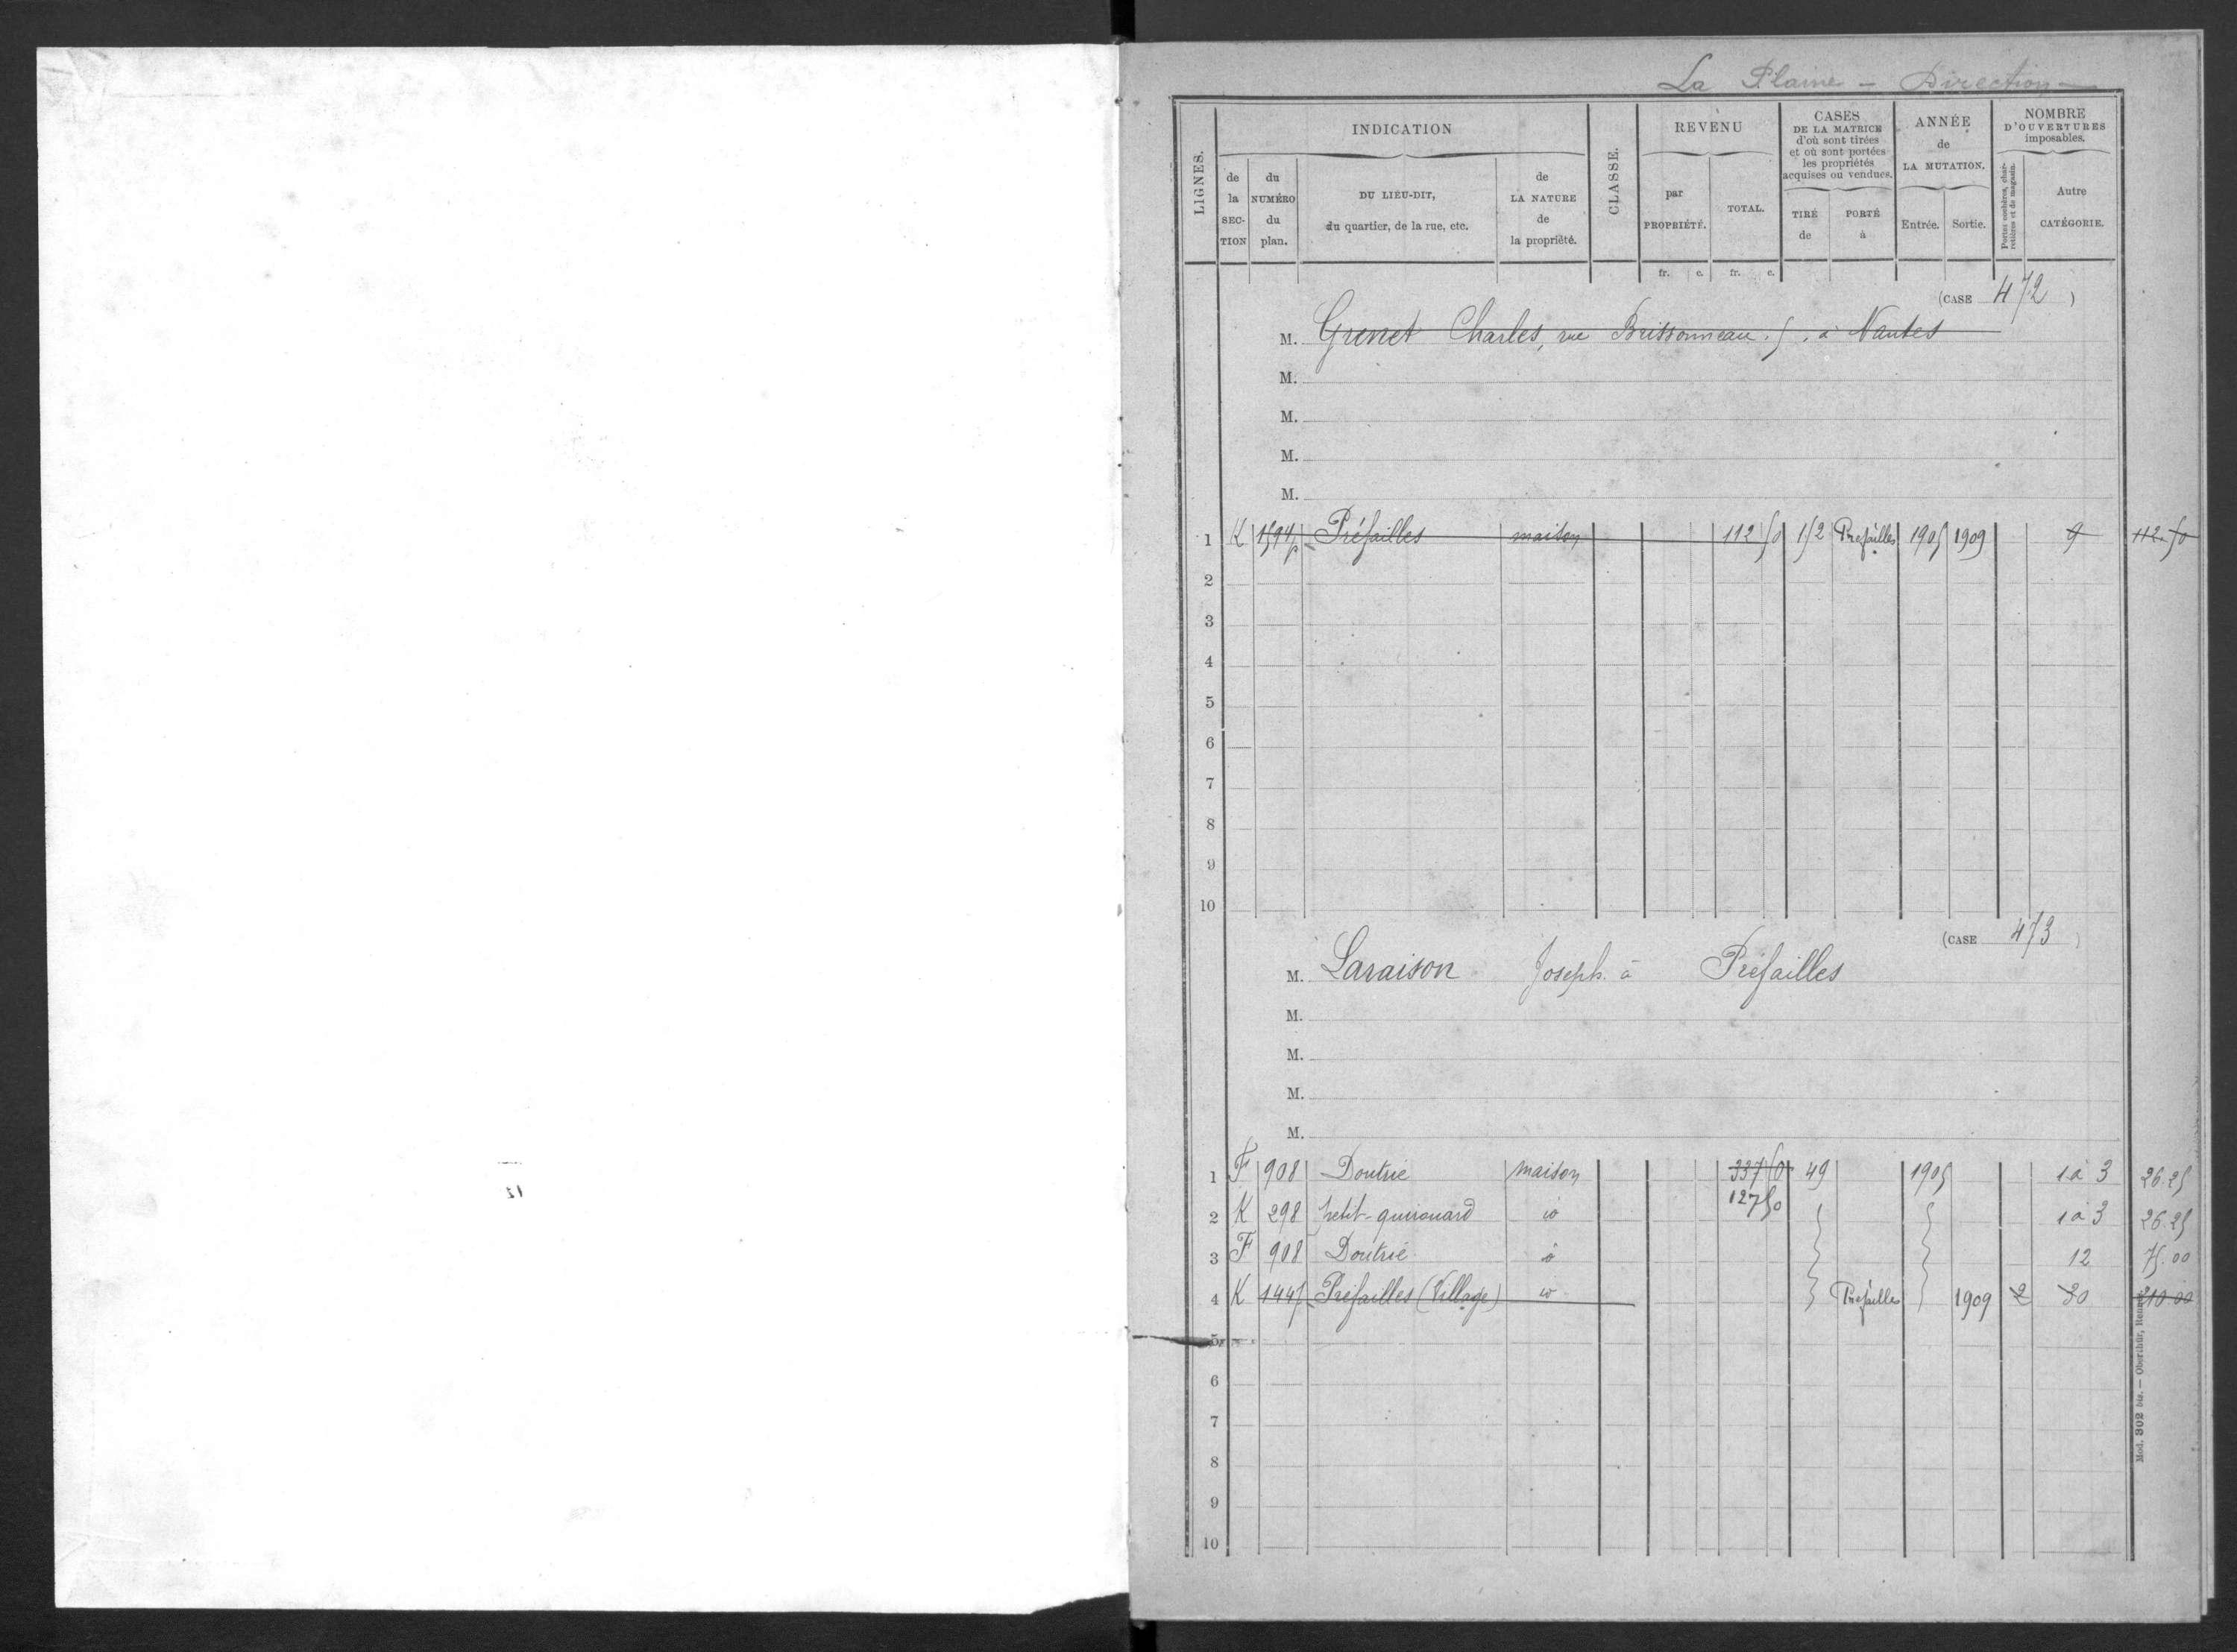 La Plaine - Direction -
LIGNES.
INDICATION
CLASSE.
REVENU
CASES
DE LA MATRICE
d'où sont tirées
et où sont portées
les propriétés
acquises ou vendues.
ANNÉE
de
LA MUTATION.
NOMBRE
D'OUVERTURES
imposables.
de
la
SEC-
TION
du
NUMÉRO
du
plan.
DU LIEU-DIT,
du quartier, de la rue, etc.
de
LA NATURE
de
la propriété.
par
PROPRIÉTÉ.
TOTAL.
TIRÉ
de
PORTÉ
à
Entrée.
Sortie.
Portes cochères, char-
retières et de magasin.
Autre
CATÉGORIE.
fr. c. fr. c.
(CASE 472 )
M. Grenet Charles, rue Brissonneau, 5, à Nantes
M.
M.
M.
M.
1 K 1594p Préfailles maison 112 50 152 Préfailles 1905 1909 9 112.50
2
3
4
5
6
7
8
9
10
(CASE 473 )
M. Laraison Joseph à Préfailles
M.
M.
M.
M.
1 F 908 Doutrie maison 337 50 49 1905 1 à 3 26.25
2 K 298 petit-quirouard id 127 50 1 à 3 26.25
3 F 908 Doutrie id 12 75.00
4 K 1447 Préfailles (Village) id Préfailles 1909 2 20 210 00
5
6
7
8
9
10
Mod. 302 bis. — Oberthür, Rennes
12